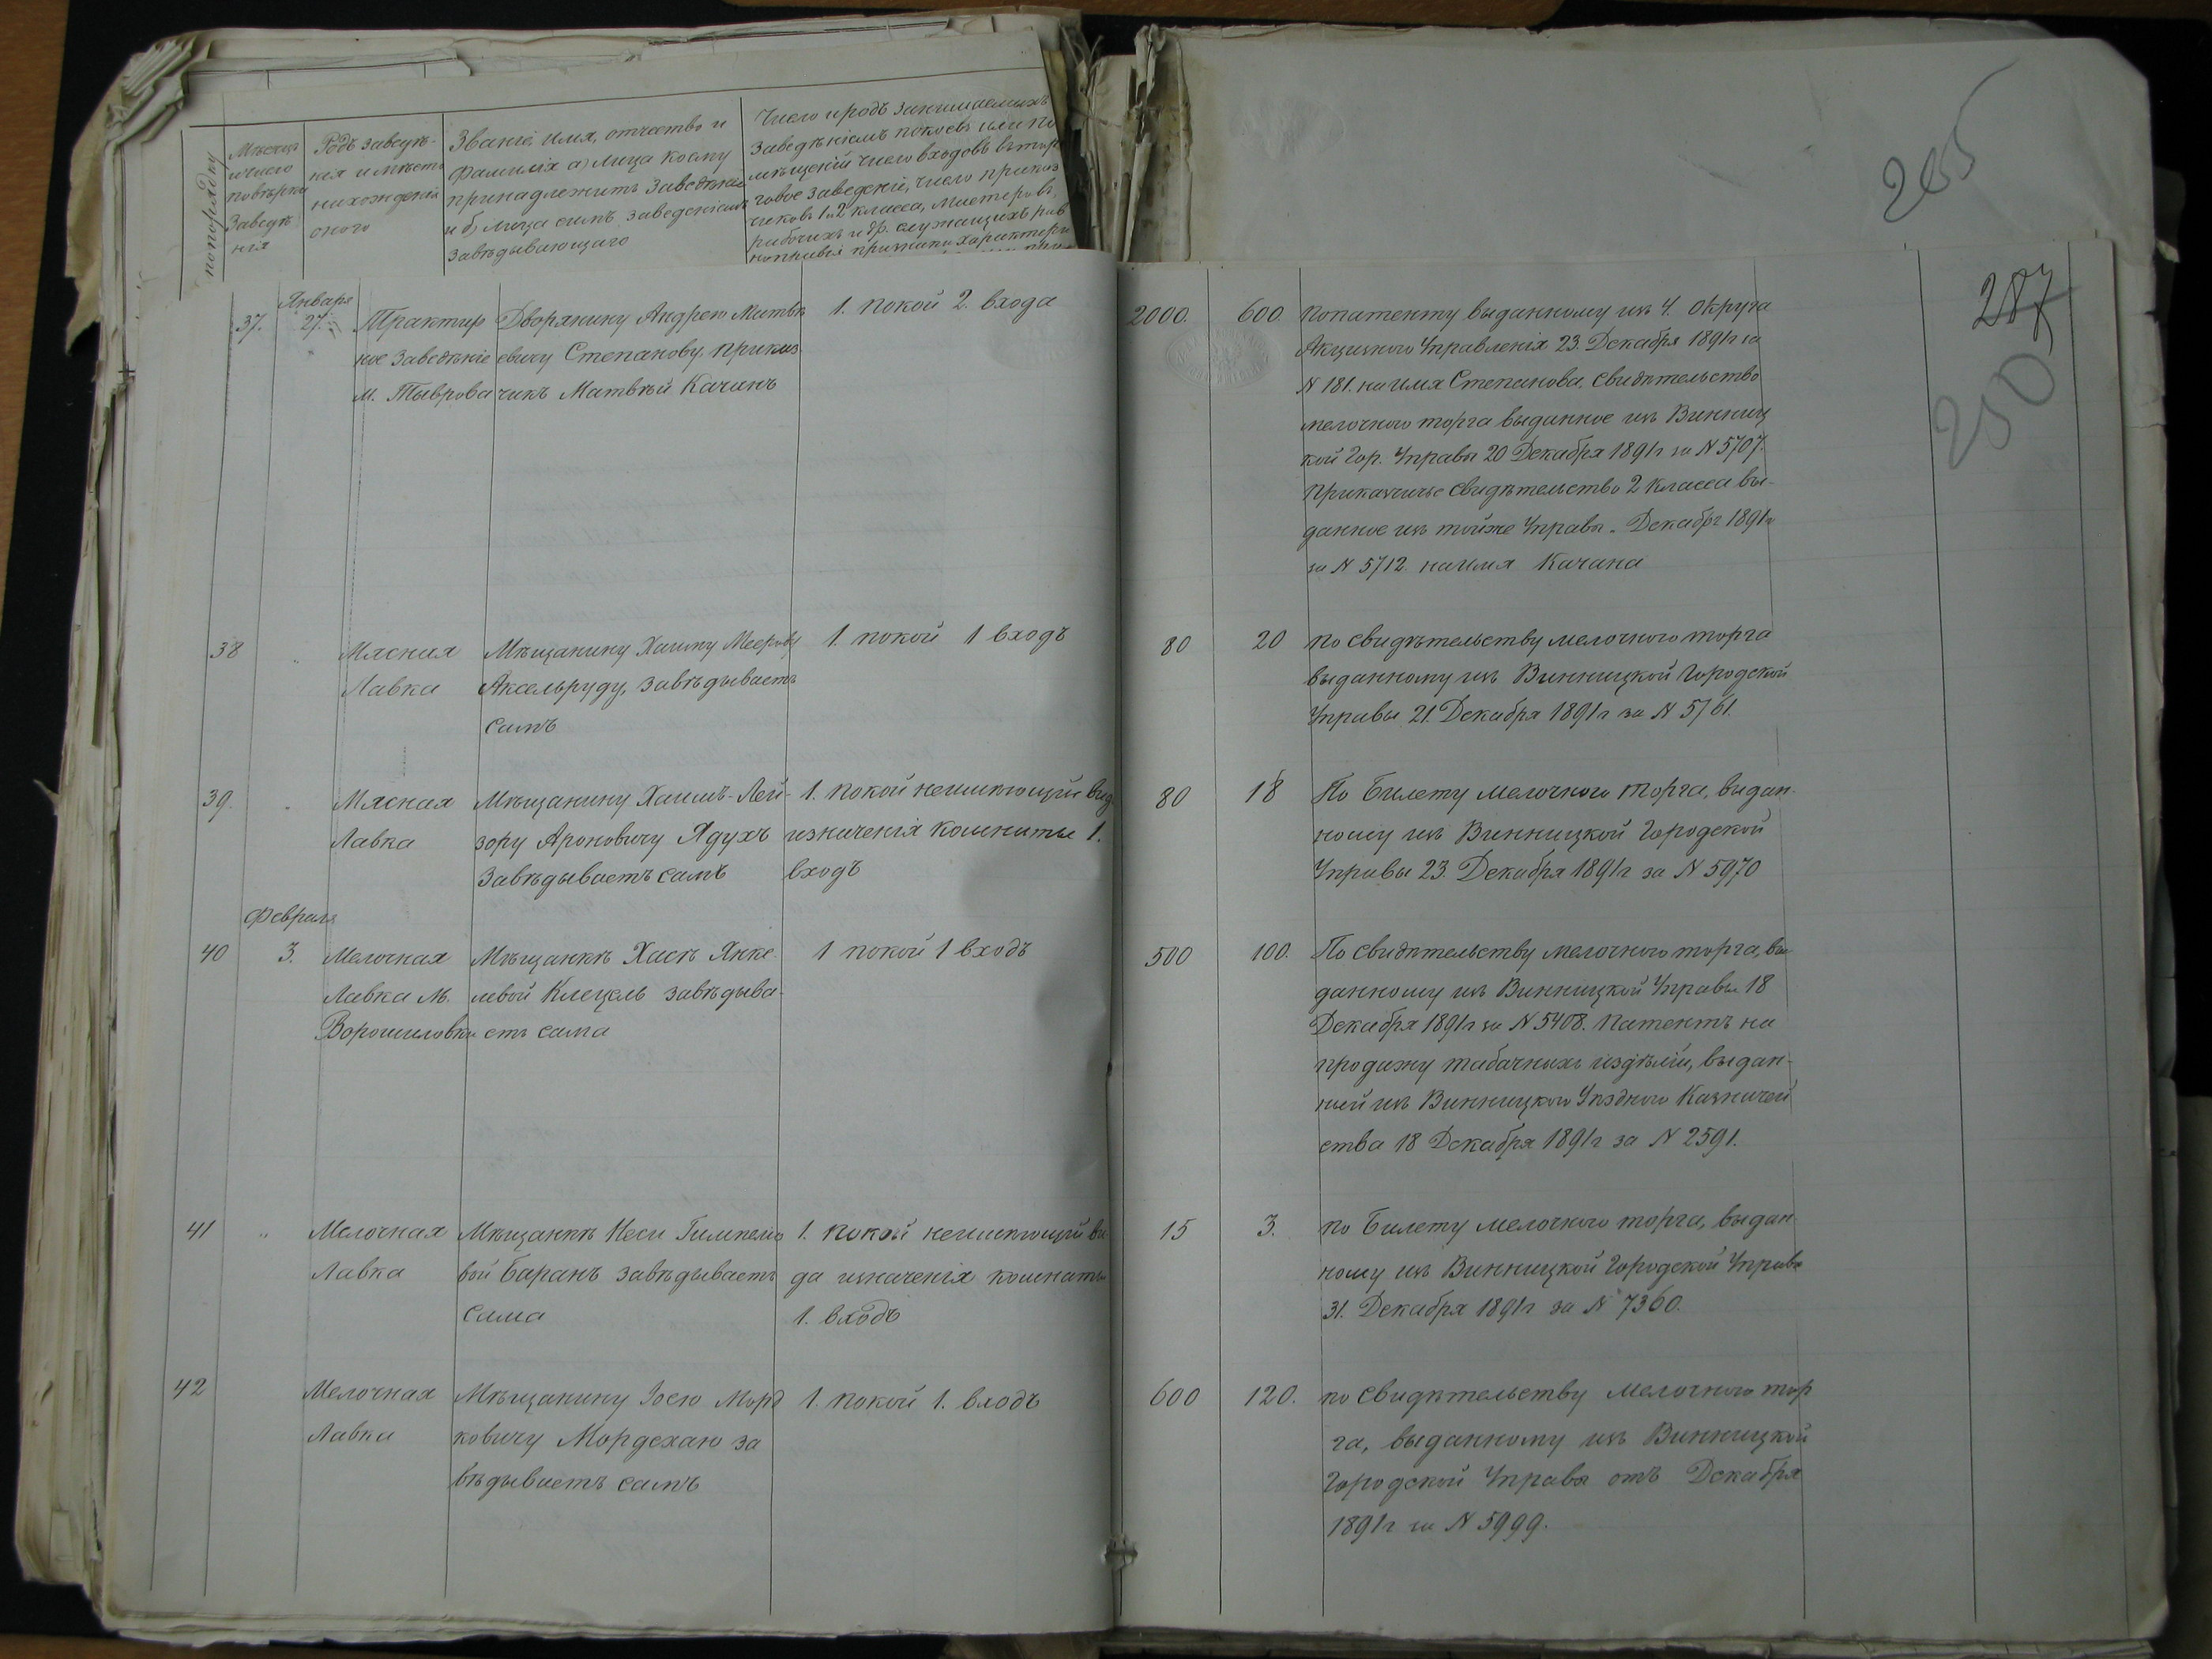 по порядку
Мѣсяцъ и число повѣрки Заведѣнія
Родъ заведѣнія и мѣсто нахожденія оного
Званіе, имя, отчество и фамилія а) лица коему принадлежитъ Заведѣніе и б) лица симъ заведеніемъ завѣдывающаго
Число и родъ занимаемыхъ
Заведѣніемъ покоевъ или по
мѣщеній число входовъ въ тор
говое заведеніе, число приказ
чиковъ 1 и 2 класса, мастеровъ,
рабочихъ и др. служащихъ
265
287
250
Января
37. 27. Трактир Дворянину Андрею Матвѣ 1. покой 2. входа
ное Заведѣніе евичу Степанову. приказ
м. Тыврова чикъ Матвѣй Качанъ
2000. 600. по патенту выданному изъ 4. Округа
Акцизного Управленія 23. Декабря 1891 г за
N 181. на имя Степанова, свидѣтельство
мелочного торга выданное изъ Винниц
кой Гор. Управы 20 Декабря 1891 г за N 5707.
Приказчичье свидѣтельство 2 класса вы-
данное изъ тойже Управы - Декабря 1891 г
за N 5712. на имя Качана
38 " Мясная Мѣщанину Хаиму Меерову 1. покой 1 входъ
Лавка Аксельруду, завѣдываетъ
самъ
80 20 по свидѣтельству мелочного торга
выданному изъ Винницкой Городской
Управы 21. Декабря 1891 г за N 5761.
39. " Мясная Мѣщанину Хаимъ-Лей- 1. покой неимѣющій вид
Лавка зору Ароновичу Ядухъ изначенія комнаты 1.
Завѣдываетъ самъ входъ
80 18 По Билету мелочного торга, выдан-
ному изъ Винницкой Городской
Управы 23. Декабря 1891 г за N 5970
Февраля
40 3. Мелочная Мѣщанкѣ Хаѣ Янке- 1 покой 1 входъ
Лавка М. левой Клецель завѣдыва-
Ворошиловки етъ сама
500 100. По свидѣтельству мелочного торга, вы
данному изъ Винницкой Управы 18
Декабря 1891 г за N 5408. Патентъ на
продажу табачныхъ издѣлій, выдан-
ный изъ Винницкого Уѣздного Казначей
ства 18 Декабря 1891 г за N 2591.
41 " Мелочная Мѣщанкѣ Неси Гимпелю 1. покой неимѣющій ви
Лавка вой Баранъ завѣдываетъ да изначенія комнаты
сама 1. входъ
15 3. по Билету мелочного торга, выдан
ному изъ Винницкой Городской Управы
31. Декабря 1891 г за N 7360.
42 Мелочная Мѣщанину Іосю Морд 1. покой 1. входъ
Лавка ковичу Мордехаю за
вѣдываетъ самъ
600 120. по свидѣтельству мелочного тор
га, выданному изъ Винницкой
Городской Управы отъ Декабря
1891 г за N 5999.